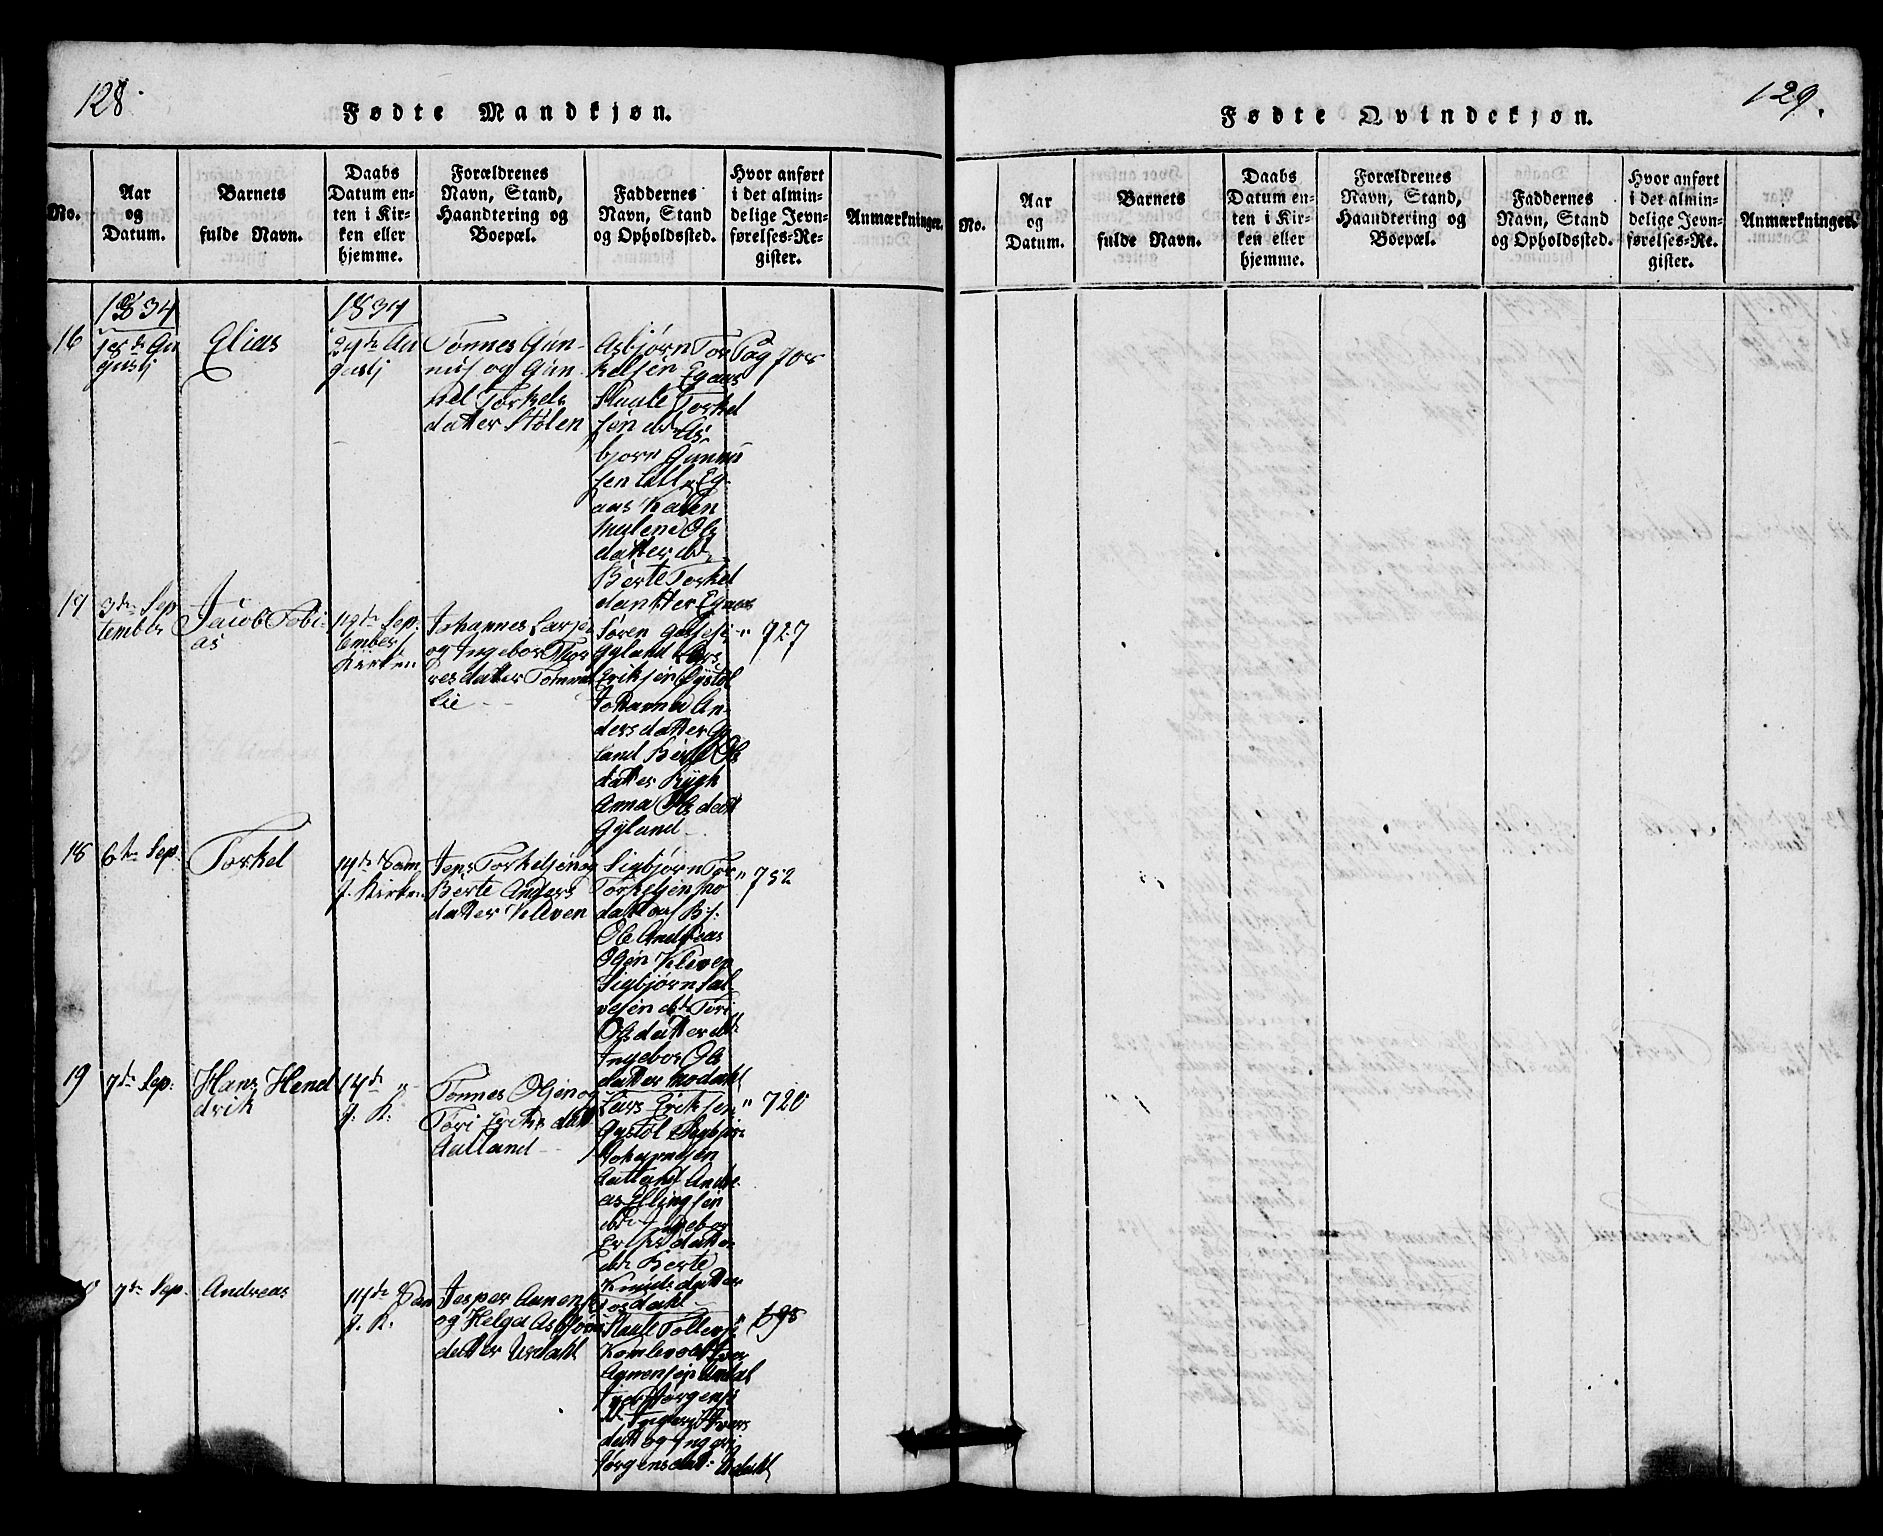 128.
Fødte Mandkjøn.
No.
Aar
og
Datum.
Barnets
fulde Navn.
Daabs
Datum en-
ten i Kir-
ken eller
hjemme.
Forældrenes
Navn, Stand,
Haandtering og
Boepæl.
Faddernes
Navn, Stand
og Opholdssted.
Hvor anført
i det almin-
delige Jevn-
førelses-Re-
gister.
Anmærkninger.
1834
1834
16
gustj
Elias
24de Au
gustj
Tønnes Gun-
nusj og Gun-
nel Torkels
datter Stølen
Asbjørn Tor
kelsen Egaas
Staale Torkel
sen do As-
bjørn Gunnu
sen Lille Eg-
aas Karen
Malene Ols
datter do
Berte Torkel
datter Egaas
Pag 708
17
3de Sep
tember
Jacob Tobi-
as
19de Sep:
tember j
Kirken
Johannes Larsen
og Ingebor Thor
resdatter Tomm
lie
Søren
Gyland Lars
Eriksen Øystøl
Johanna An-
ders datter Gy
land Berte Ols
datter Rygh
Anna Ols datt
Gyland
" 727
18
6te Sep.
Torkel
14de
j. Kirken
Jens Torkelsen og
Berte Anders
datter Kleven
Sigbjørn Tor
Torkelsen no
datt
Ole Andreas
Olsen Kleven
Sigbjørn Sal-
vesen do Tori
Ols datter do
Ingebor Ols
datter nodahl
" 752
19
7de Sep:
Hans Hend
drik
14de "
j. K.
Tønnes Olsen og
Tori Eriks datt
Aatland
Lars Eriksen
Øystøl Sigbjør
Johannesen
Aatland Andre
as Ellingsen
do Ingebor
Eriks datter
do Berte
Knuds datter
Tosdahl
" 720
7de Sep.
Andreas
14de
j. K.
Jesper Aanensj
og Helga Asbjørns
datter Urdahl
Staale Tollevs
Aanensen Urdal
Jørgens
do
datt og Ingeri
Jørgensdat: Urdahl
" 698
129.
Fødte Qvindekjøn.
No.
Aar
og
Datum.
Barnets
fulde Navn.
Daabs
Datum en-
ten i Kir-
ken eller
hjemme.
Forældrenes
Navn, Stand,
Haandtering og
Boepæl.
Faddernes
Navn, Stand
og Opholdssted.
Hvor anført
i det almin-
delige Jevn-
førelses-Re.
gister.
Anmærkninger.